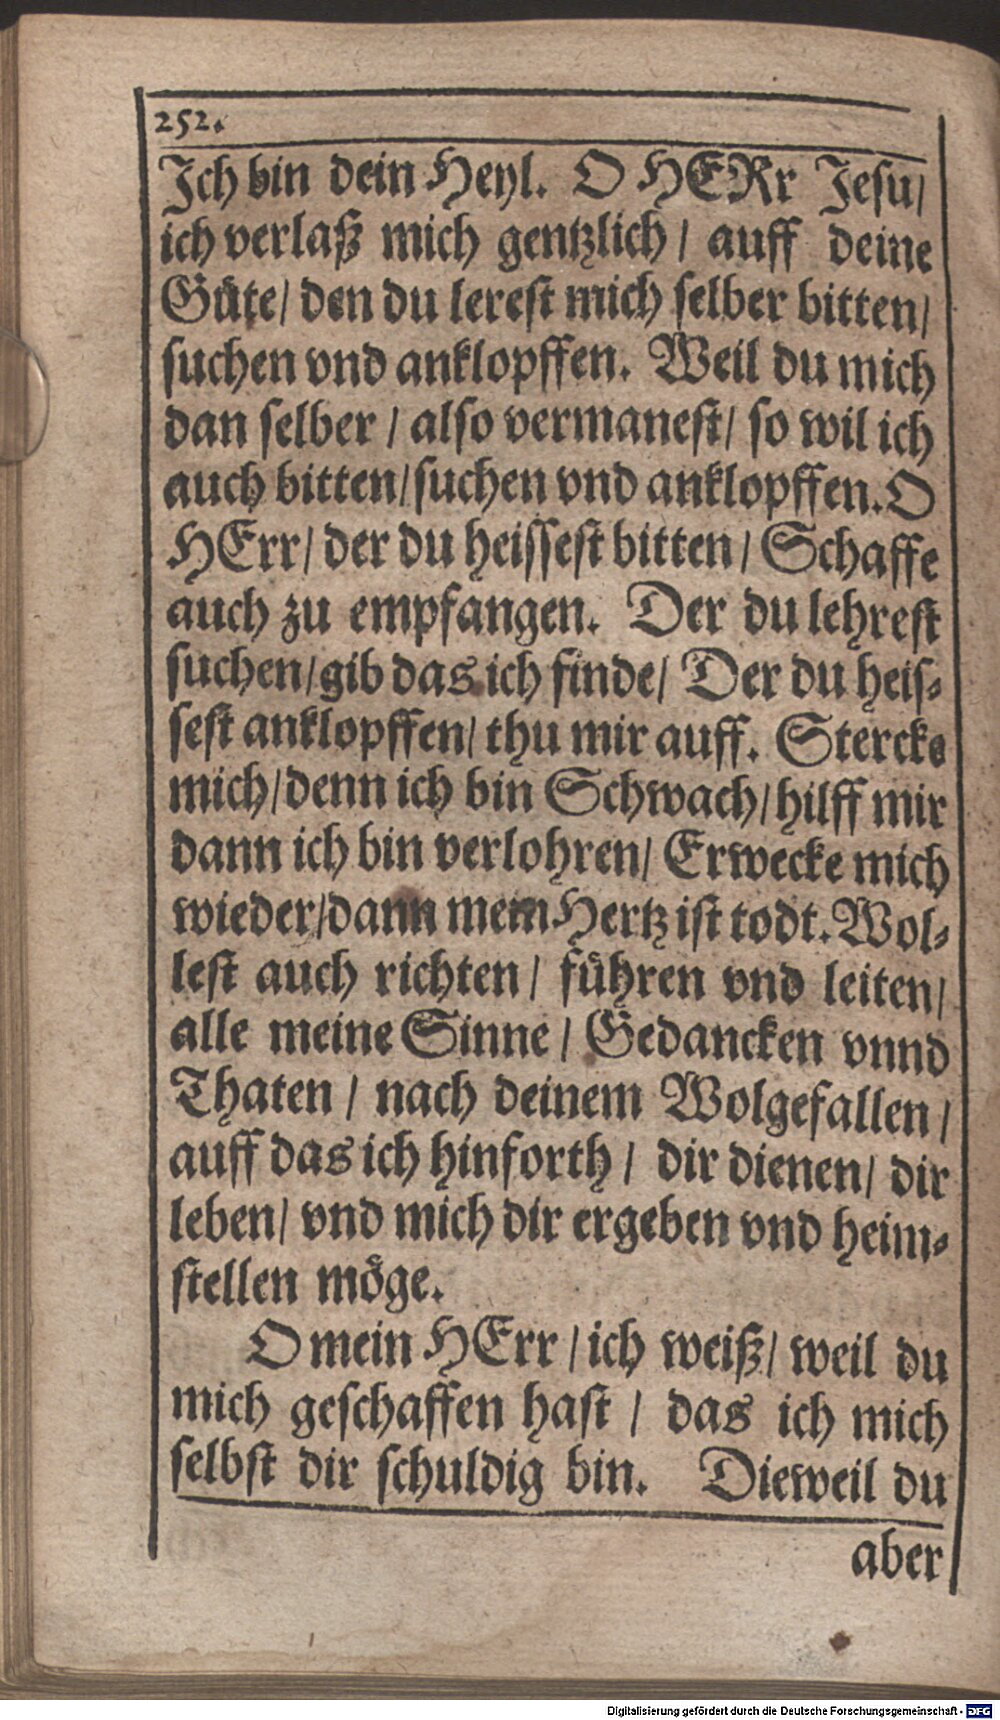 252.
Ich bin dein Heyl. O HERr Jesu/
ich verlaß mich gentzlich / auff deine
Güte/ den du lerest mich selber bitten/
suchen vnd anklopffen. Weil du mich
dan selber / also vermanest/ so wil ich
auch bitten/suchen vnd anklopffen. O
HErr/ der du heissest bitten/ Schaffe
auch zu empfangen. Der du lehrest
suchen/gib das ich finde/ Der du heis-
sest anklopffen/ thu mir auff. Stercke
mich/denn ich bin Schwach/hilff mir
dann ich bin verlohren/ Erwecke mich
wieder/dann mein Hertz ist todt. Wol-
lest auch richten/ führen vnd leiten/
alle meine Sinne / Gedancken vnnd
Thaten / nach deinem Wolgefallen/
auff das ich hinforth / dir dienen/ dir
leben/ vnd mich dir ergeben vnd heim-
stellen möge.
O mein HErr /ich weiß/ weil du
mich geschaffen hast / das ich mich
selbst dir schuldig bin. Dieweil du
aber
Digitalisierung gefördert durch die Deutsche Forschungsgemeinschaft - DFG